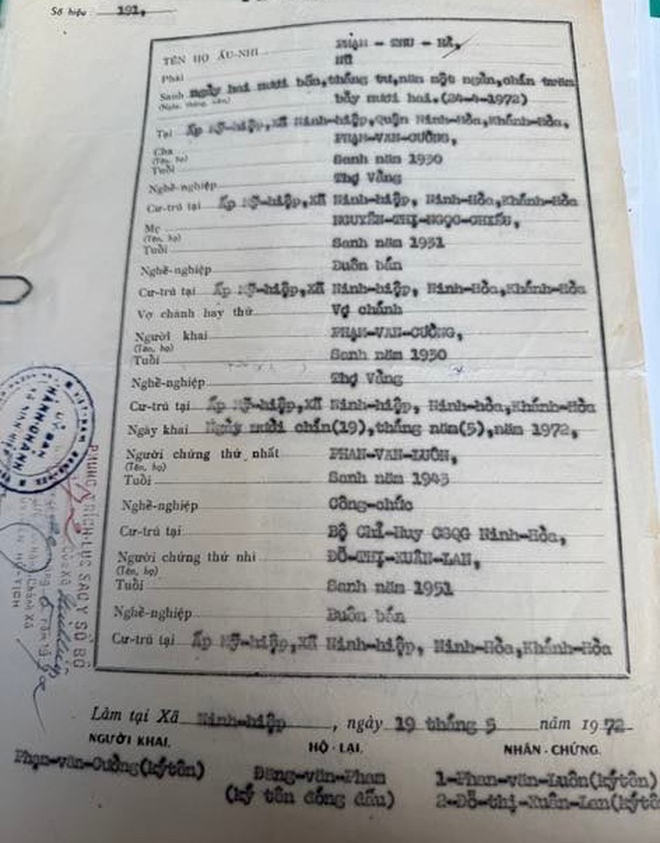 Số hiệu 191,
TÊN HỌ ẤU-NHI PHẠN - THU - HÀ,
Phái Nữ
Sanh ngày hai mươi bốn, tháng tư, năm một ngàn, chín trăm
(Ngày, tháng, năm) bảy mươi hai. (24-4-1972)
Tại Ấp Mỹ-hiệp, Xã Ninh-hiệp, Quận Ninh-Hòa, Khánh-Hòa,
Cha PHẠN-VAN-CƯỜNG,
(Tên, họ)
Tuổi Sanh năm 1930
Nghề-nghiệp Thợ Vàng
Cư-trú tại Ấp Mỹ-hiệp, Xã Ninh-hiệp, Ninh-Hòa, Khánh-Hòa
Mẹ NGUYỄN-THỊ-NGỌC-CHIẾU,
(Tên, họ)
Tuổi Sanh năm 1931
Nghề-nghiệp Buôn bán
Cư-trú tại Ấp Mỹ-hiệp, Xã Ninh-hiệp, Ninh-Hòa, Khánh-Hòa
Vợ chánh hay thứ Vợ chánh
Người khai PHẠN-VAN-CƯỜNG,
(Tên, họ)
Tuổi Sanh năm 1930
Nghề-nghiệp Thợ Vàng
Cư-trú tại Ấp Mỹ-hiệp, Xã Ninh-hiệp, Ninh-hòa, Khánh-Hòa
Ngày khai Ngày mười chín(19), tháng năm(5), năm 1972,
Người chứng thứ nhất PHAN-VAN-LUÔN,
(Tên, họ)
Tuổi Sanh năm 1943
Nghề-nghiệp Công-chức
Cư-trú tại Bộ Chỉ-Huy CSQG Ninh-Hòa,
Người chứng thứ nhì ĐỖ-THỊ-XUÂN-LAN,
(Tên, họ)
Tuổi Sanh năm 1951
Nghề-nghiệp Buôn bán
Cư-trú tại Ấp Mỹ-hiệp, Xã Ninh-hiệp, Ninh-Hòa, Khánh-Hòa
Làm tại Xã Ninh-hiệp, ngày 19 tháng 5 năm 1972
NGƯỜI KHAI. HỘ - LẠI. NHÂN - CHỨNG.
Phạn-văn-Cường(ký tên) Đặng-văn-Phan 1-Phan-văn-Luôn(ký tên)
(ký tên đóng dấu) 2-Đỗ-thị-Xuân-Lan(ký tên
ỦY BAN
HÀNH-CHÁNH
PHỤNG TRÍCH-LỤC SAO Y SỔ BỘ